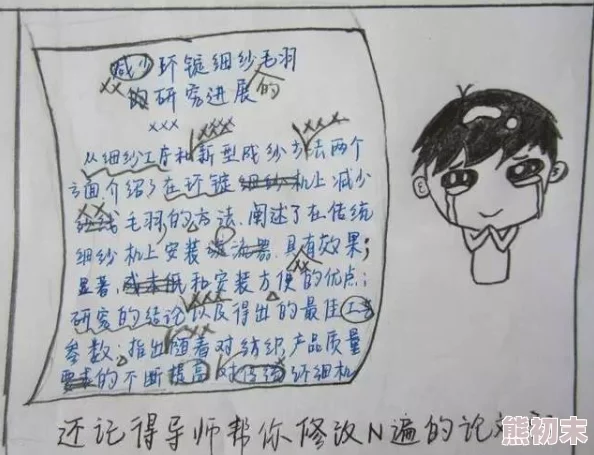 减少环锭细纱毛羽
的研究进展的
从细纱工序和新型成纱方法两个
方面介绍了在环锭细纱机上减少
纱线毛羽的方法.阐述了在传统
细纱机上安装 具有效果;
显著,成本低和安装方便的优点;
研究的结论以及得出的最佳工艺
参数;指出随着对纺织产品质量
要求的不断提高对传统环细机
还记得导师帮你修改N遍的论文
熊初末